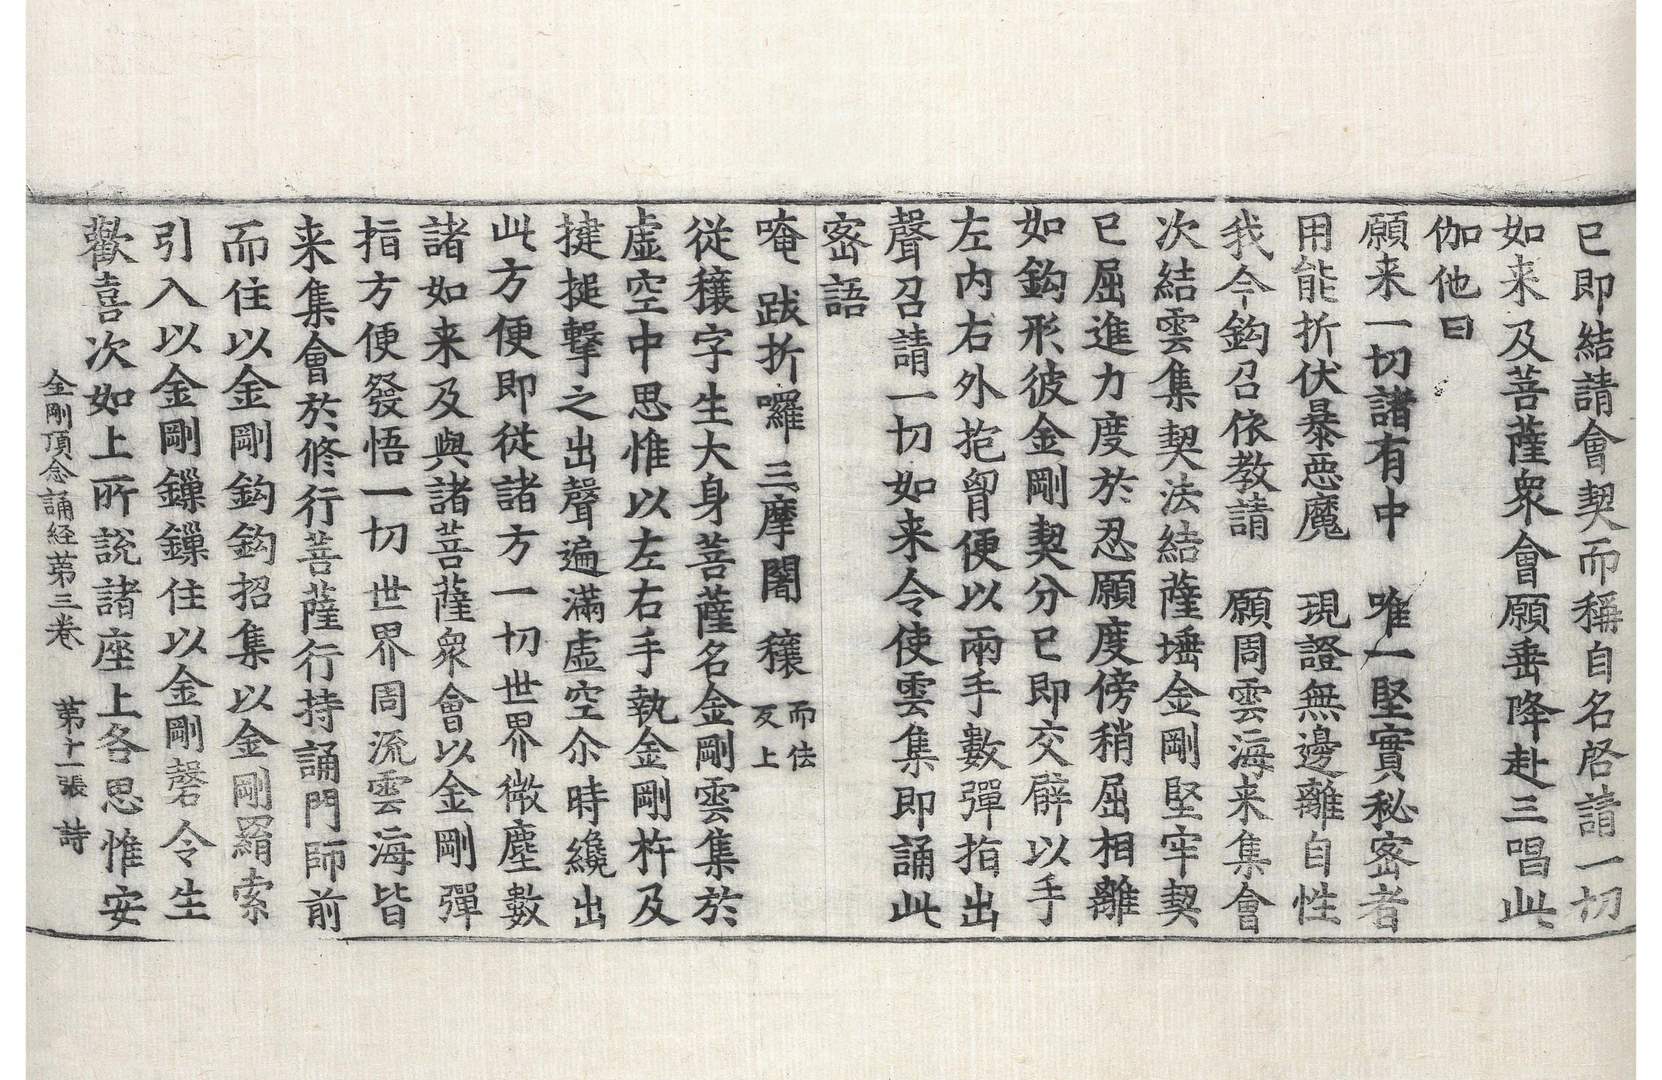 已即結請會契而稱自名啓請一切
如来及菩薩衆會願垂降赴三唱此
伽他曰
願来一切諸有中　唯一堅實秘密者
用能折伏暴惡魔　現證無邊離自性
我今鈎召依教請　願周雲海来集會
次結雲集契法結薩埵金剛堅牢契
已屈進力度於忍願度傍稍屈相離
如鈎形彼金剛契分已即交臂以手
左内右外抱胷便以兩手數彈指出
聲召請一切如来令使雲集即誦此
密語
唵　跋折囉　三摩闍　穰　而佉反上
從穰字生大身菩薩名金剛雲集於
虛空中思惟以左右手執金剛杵及
揵搥擊之出聲遍滿虛空尒時纔出
此方便即從諸方一切世界微塵數
諸如来及與諸菩薩衆會以金剛彈
指方便發悟一切世界周流雲海皆
来集會於修行菩薩行持誦門師前
而住以金剛鈎鈎招集以金剛羂索
引入以金剛鏁鏁住以金剛磬令生
歡喜次如上所説諸座上各思惟安
金剛頂念誦経第三卷　第十一張　詩